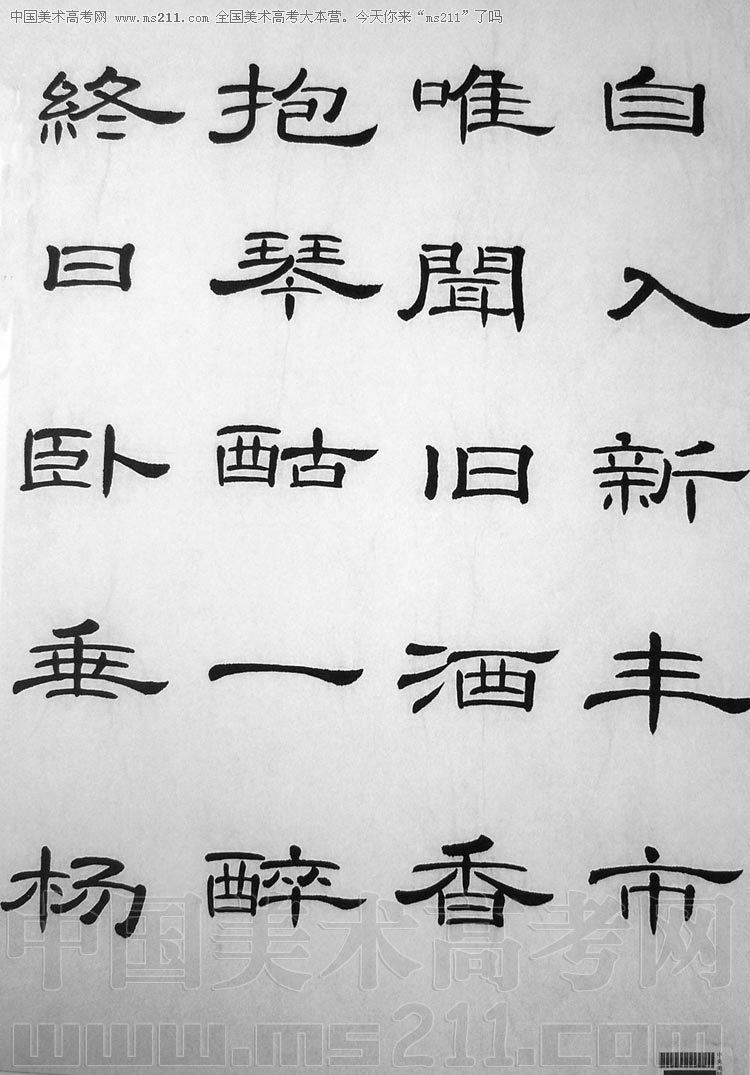 中国美术高考网 www.ms211.com 全国美术高考大本营。今天你来“ms211”了吗
自入新丰市
唯聞旧酒香
抱琴酤一醉
終日卧垂杨
中国美术高考网
www.ms211.com